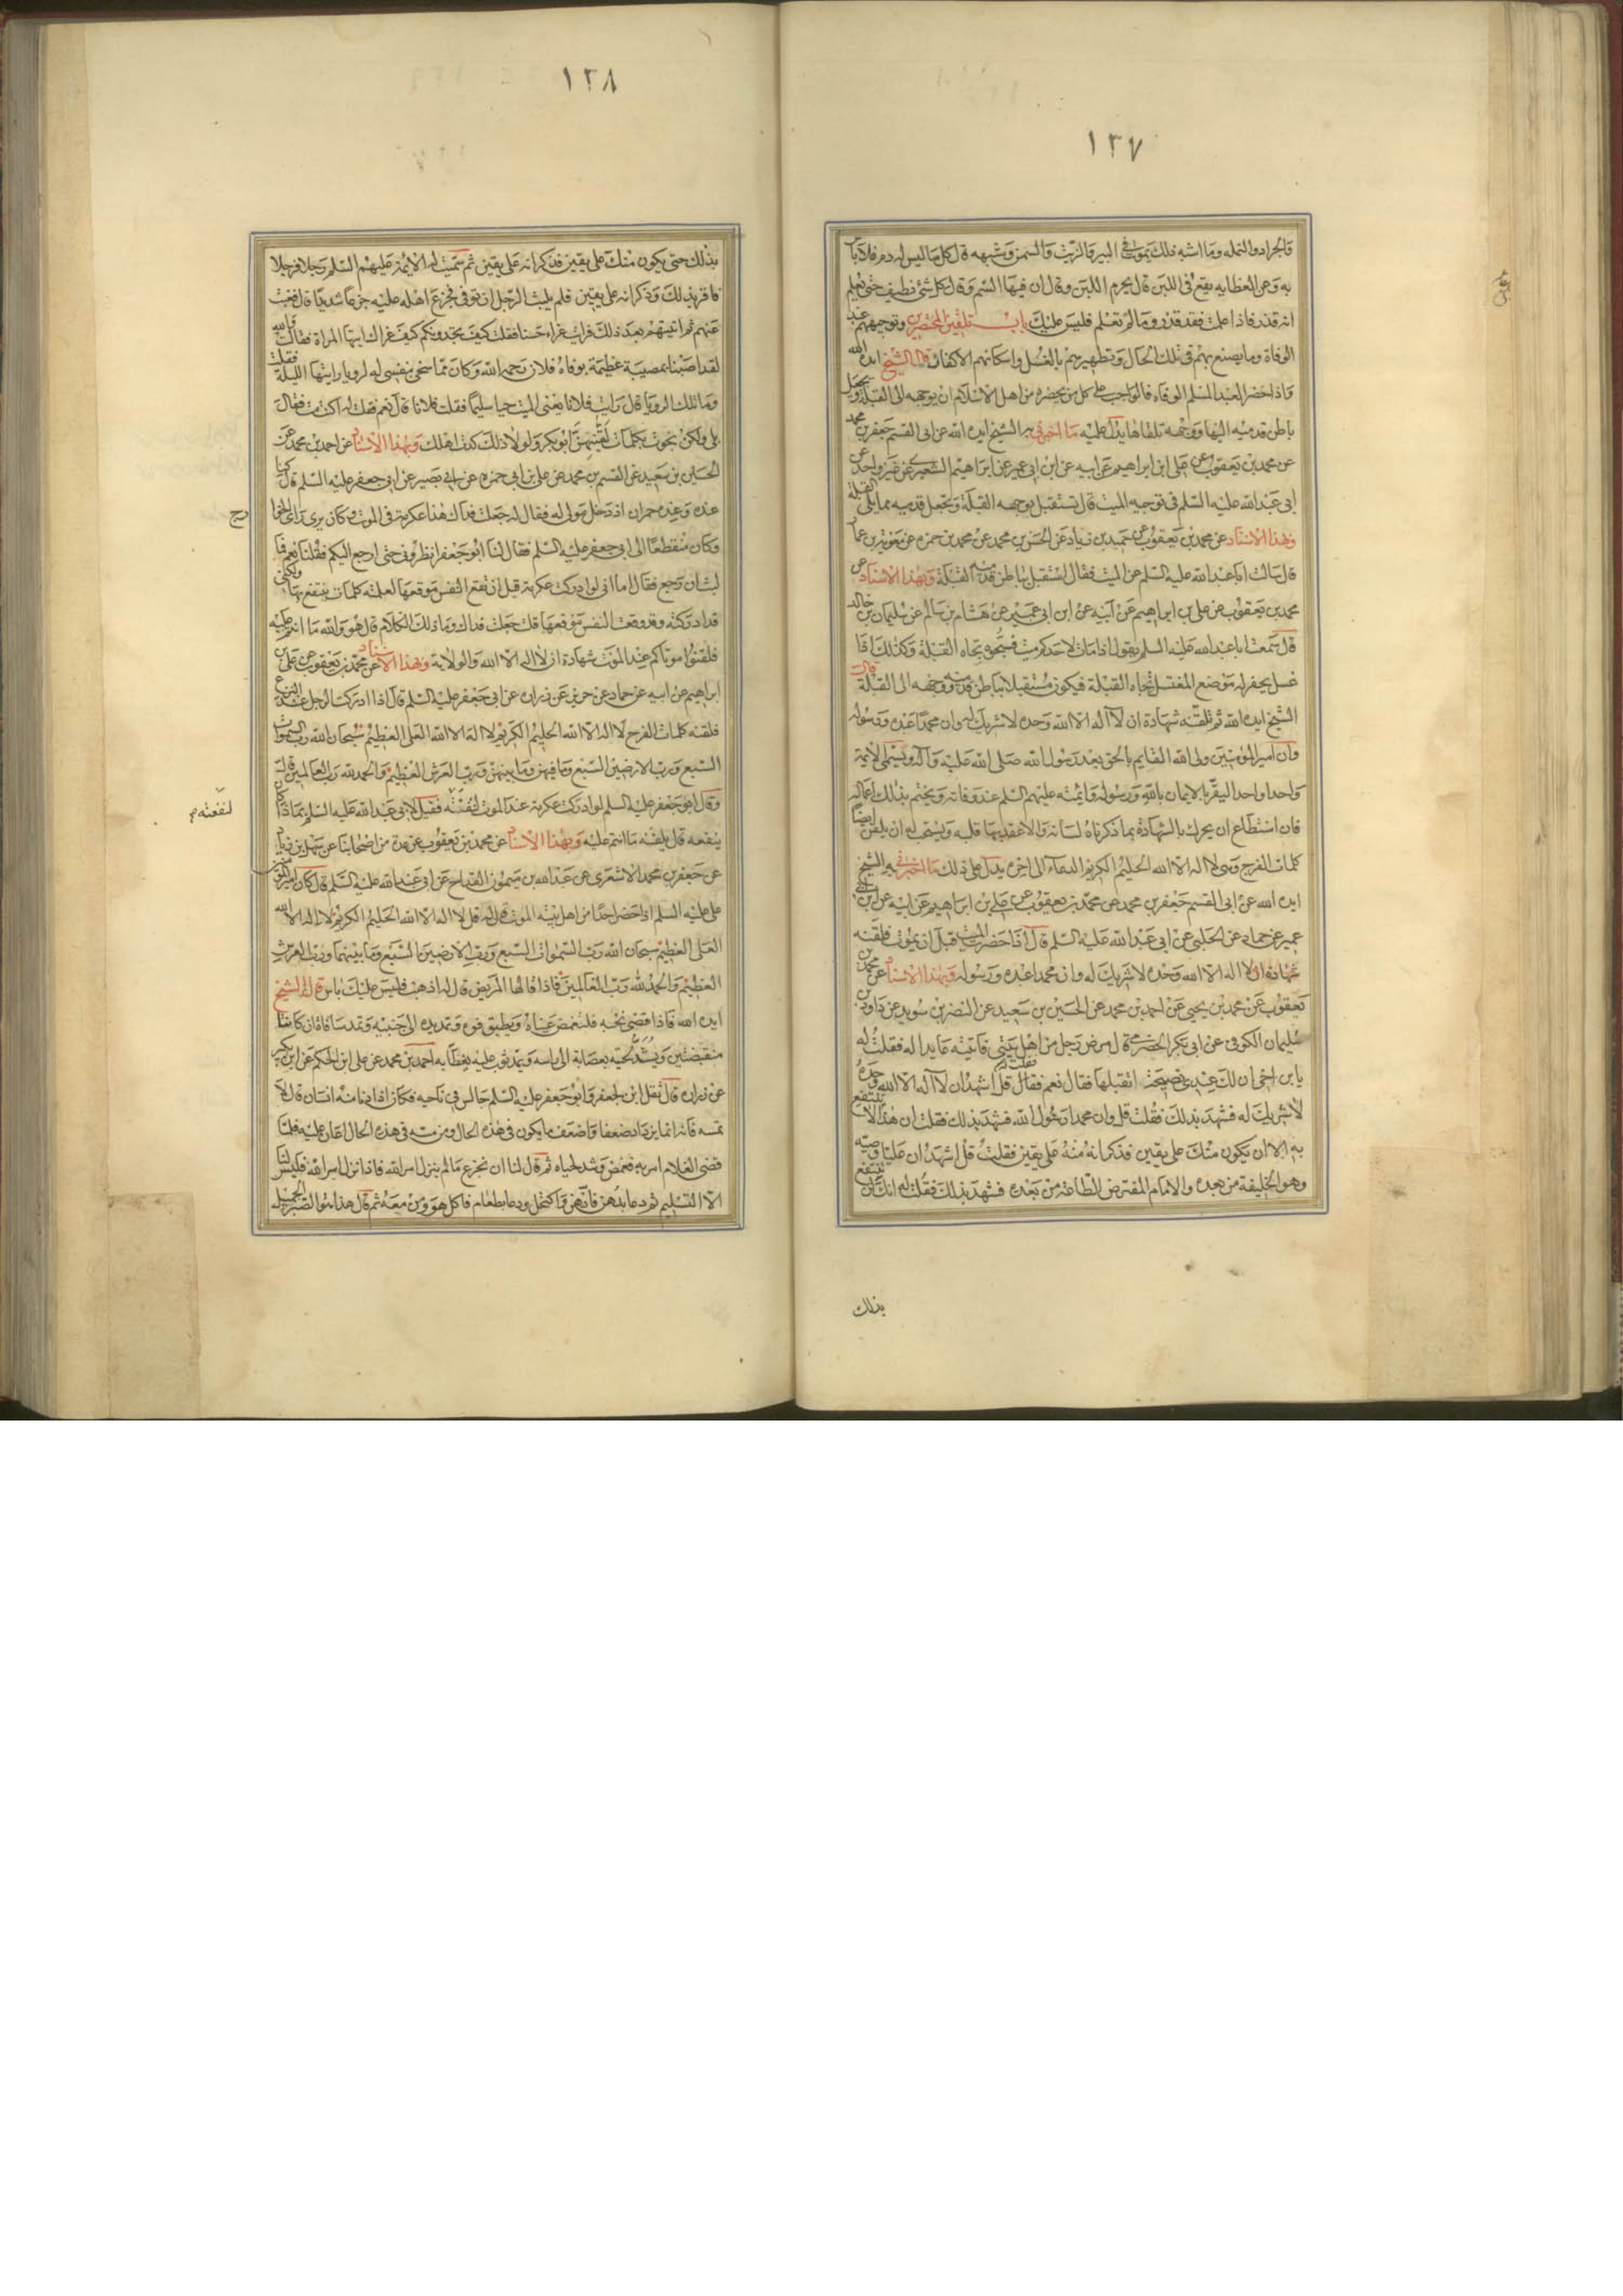 ١٢٧
والجراد والنمله وما اشبه ذلك يموت في البير والزيت والسمن وشبهه قال كل ما ليس له دم فلا باس
به وعن العظايه يقع في اللبن قال يحرم اللبن وقال ان فيها السم وقال كل شئ نظيف حتى يعلم
انه قذر فاذا علمت فقد قذر وما لم تعلم فليس عليك باب تلقين المحتضرين وتوجيههم عند
الوفاة وما يصنع بهم في تلك الحال وتطهيرهم بالغسل واسكانهم الاكفان قال الشيخ ايده الله
واذا حضر العبد المسلم الوفاه فالواجب على كل من يحضره من اهل الاسلام ان يوجهه الى القبلة ويجعل
باطن قدميه اليها ووجهه تلقاها يدل عليه ما اخبرني به الشيخ ايده الله عن ابى القسم جعفر بن محمد
عن محمد بن يعقوب عن على ابن ابراهيم عن ابيه عن ابن ابى عمير عن ابراهيم الشعيرى عن غير واحد عن
ابى عبد الله عليه السلم في توجيه الميت قال تستقبل بوجهه القبلة وتجعل قدميه مما يلى القبلة
وبهذا الاسناد عن محمد بن يعقوب عن حميد بن زياد عن الحسن بن محمد عن محمد بن حمزه عن معويه بن عمار
قال سالت ابا عبد الله عليه السلم عن الميت فقال استقبل بباطن قدميه القبلة وبهذا الاسناد عن
محمد بن يعقوب عن على بن ابراهيم عن ابيه عن ابن ابى عمير عن هشام بن سالم عن سليمان بن خالد
قال سمعت ابا عبد الله عليه السلم يقول اذا مات لاحدكم ميت فسجوه تجاه القبلة وكذلك اذا
غسل يحفر له موضع المغتسل تجاه القبلة فيكون مستقبلا بباطن قدميه ووجهه الى القبلة قال
الشيخ ايده الله ثم تلقنه شهادة ان لا اله الا الله وحده لا شريك له وان محمدا عبده ورسوله
وان امير المومنين ولى الله القايم بالحق بعد رسول الله صلى الله عليه وآله ويسمى الايمة
واحدا واحدا ليقر بالايمان بالله ورسوله وايمته عليهم السلم عند وفاته ويختم بذلك اعماله
فان استطاع ان يحرك بالشهادة بما ذكرناه لسانه والا عقد بها قلبه ويستحب له ان يلقن ايضا
كلمات الفرج وهى لا اله الا الله الحليم الكريم الدعاء الى اخره يدل على ذلك ما اخبرني به الشيخ
ايده الله عن ابى القسم جعفر بن محمد عن محمد بن يعقوب عن على بن ابراهيم عن ابيه عن ابن ابى
عمير عن حماد عن الحلبى عن ابى عبد الله عليه السلم قال اذا حضرت الميت قبل ان يموت فلقنه
شهادة ان لا اله الا الله وحده لا شريك له وان محمدا عبده ورسوله وبهذا الاسناد عن محمد بن
يعقوب عن محمد بن يحيى عن احمد بن محمد عن الحسين بن سعيد عن النضر بن سويد عن داود بن
سليمان الكوفى عن ابى بكر الحضرمى قال مرض رجل من اهل بيتى فاتيته عايدا له فقلت له
يابن اخى ان لك عندى نصيحة اتقبلها فقال نعم فقلت له قل اشهد ان لا اله الا الله وحده
لا شريك له فشهد بذلك فقلت قل وان محمدا رسول الله فشهد بذلك فقلت ان هذا لا ينتفع
به الا ان يكون منك على يقين فذكر انه منه على يقين فقلت قل اشهد ان عليا وصيه
وهو الخليفة من بعده والامام المفترض الطاعه من بعده فشهد بذلك فقلت له انك لن ينتفع
بذلك
١٢٨
بذلك حتى يكون منك على يقين فذكر انه على يقين ثم سميت له الايمة عليهم السلم رجلا فرجلا
فاقر بذلك وذكر انه على يقين فلم يلبث الرجل ان توفى فجزع اهله عليه جزعا شديدا قال فغبت
عنهم ثم اتيتهم بعد ذلك فرايت عزاء حسنا فقلت كيف تجدونكم كيف عزاك ايتها المراة فقالت والله
لقد اصبنا بمصيبة عظيمة بوفاة فلان رحمه الله وكان مما سخى بنفسى له لرويا رايتها الليلة فقلت
وما تلك الرويا قال رايت فلانا يعنى الميت حيا سليما فقلت فلانا قال نعم فقلت له اكنت مت فقال
بلى ولكن نجوت بكلمات لقنيهن ابو بكر ولولا ذلك كدت اهلك وبهذا الاسناد عن احمد بن محمد عن
الحسين بن سعيد عن القسم بن محمد عن على بن ابى حمزه عن ابى بصير عن ابى جعفر عليه السلم قال كنا
عنده وعنده حمران اذ دخل مولى له فقال له جعلت فداك هذا عكرمة في الموت وكان يرى راى الخوا
رج
وكان منقطعا الى ابى جعفر عليه السلم فقال لنا ابو جعفر انظرونى حتى ارجع اليكم فقلنا نعم فما
لبث ان رجع فقال اما انى لو ادركت عكرمة قبل ان تقع النفس موقعها لعلمته كلمات ينتفع بها ولكنى
قد ادركته وقد وقعت النفس موقعها قلت جعلت فداك وما ذلك الكلام قال هو والله ما انتم عليه
فلقنوا موتاكم عند الموت شهادة ان لا اله الا الله والولاية وبهذا الاسناد عن محمد بن يعقوب عن على بن
ابراهيم عن ابيه عن حماد عن حريز عن زراره عن ابى جعفر عليه السلم قال اذا ادركت الرجل عند النزع
فلقنه كلمات الفرج لا اله الا الله الحليم الكريم لا اله الا الله العلى العظيم سبحان الله رب السموات
السبع ورب الارضين السبع وما فيهن وما بينهن ورب العرش العظيم والحمد لله رب العالمين قال
وقال ابو جعفر عليه السلم لو ادركت عكرمة عند الموت لنفعته فقيل لابى عبد الله عليه السلم بماذا كان
لنفعته
ينفعه قال يلقنه ما انتم عليه وبهذا الاسناد عن محمد بن يعقوب عن عدة من اصحابنا عن سهل بن زياد
عن جعفر بن محمد الاشعرى عن عبد الله بن ميمون القداح عن ابى عبد الله عليه السلم قال كان امير المومنين
على عليه السلم اذا حضر احدا من اهل بيته الموت قال له قل لا اله الا الله الحليم الكريم لا اله الا الله
العلى العظيم سبحان الله رب السموات السبع ورب الارضين السبع وما بينهما ورب العرش
العظيم والحمد لله رب العالمين فاذا قالها المريض قال له اذهب فليس عليك باس قال الشيخ
ايده الله فاذا قضى نحبه فلتغمض عيناه ويطبق فوه وتمد يده الى جنبيه وتمد ساقاه ان كانتا
منقبضتين ويشد لحيه بعصابة الى راسه ويمد ثوب عليه يغطا به احمد بن محمد عن على ابن الحكم عن ابن بكير
عن زراره قال ثقل ابن لجعفر وابو جعفر عليه السلم جالس في ناحيه فكان اذا دنا منه انسان قال لا
تمسه فانه انما يزداد ضعفا واضعف ما يكون في هذه الحال ومن مسه في هذه الحال اعان عليه فلما
قضى الغلام امر به فغمض وشد لحياه ثم قال لنا ان نجزع ما لم ينزل امر الله فاذا نزل امر الله فليس لنا
الا التسليم ثم دعا بدهن فادهن واكتحل ودعا بطعام فاكل هو ومن معه ثم قال هذا هو الصبر الجميل